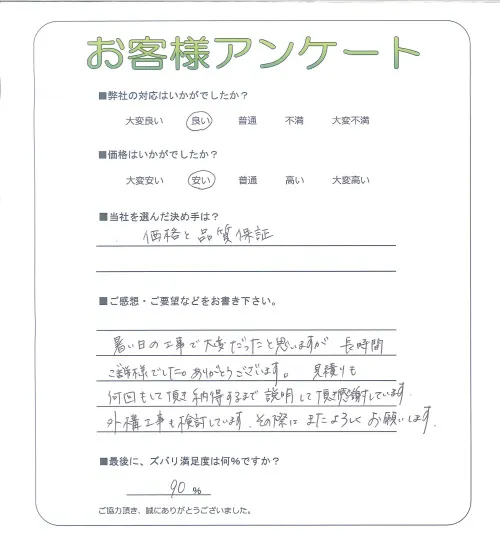 お客様アンケート
■弊社の対応はいかがでしたか？
大変良い 良い 普通 不満 大変不満
■価格はいかがでしたか？
大変安い 安い 普通 高い 大変高い
■当社を選んだ決め手は？
価格と品質保証
■ご感想・ご要望などをお書き下さい。
暑い日の工事で大変だったと思いますが 長時間
ご苦労様でした。ありがとうございます。 見積りも
何回もして頂き納得するまで説明して頂き感謝しています。
外構工事も検討しています。その際にまたよろしくお願いします。
■最後に、ズバリ満足度は何％ですか？
90 %
ご協力頂き、誠にありがとうございました。